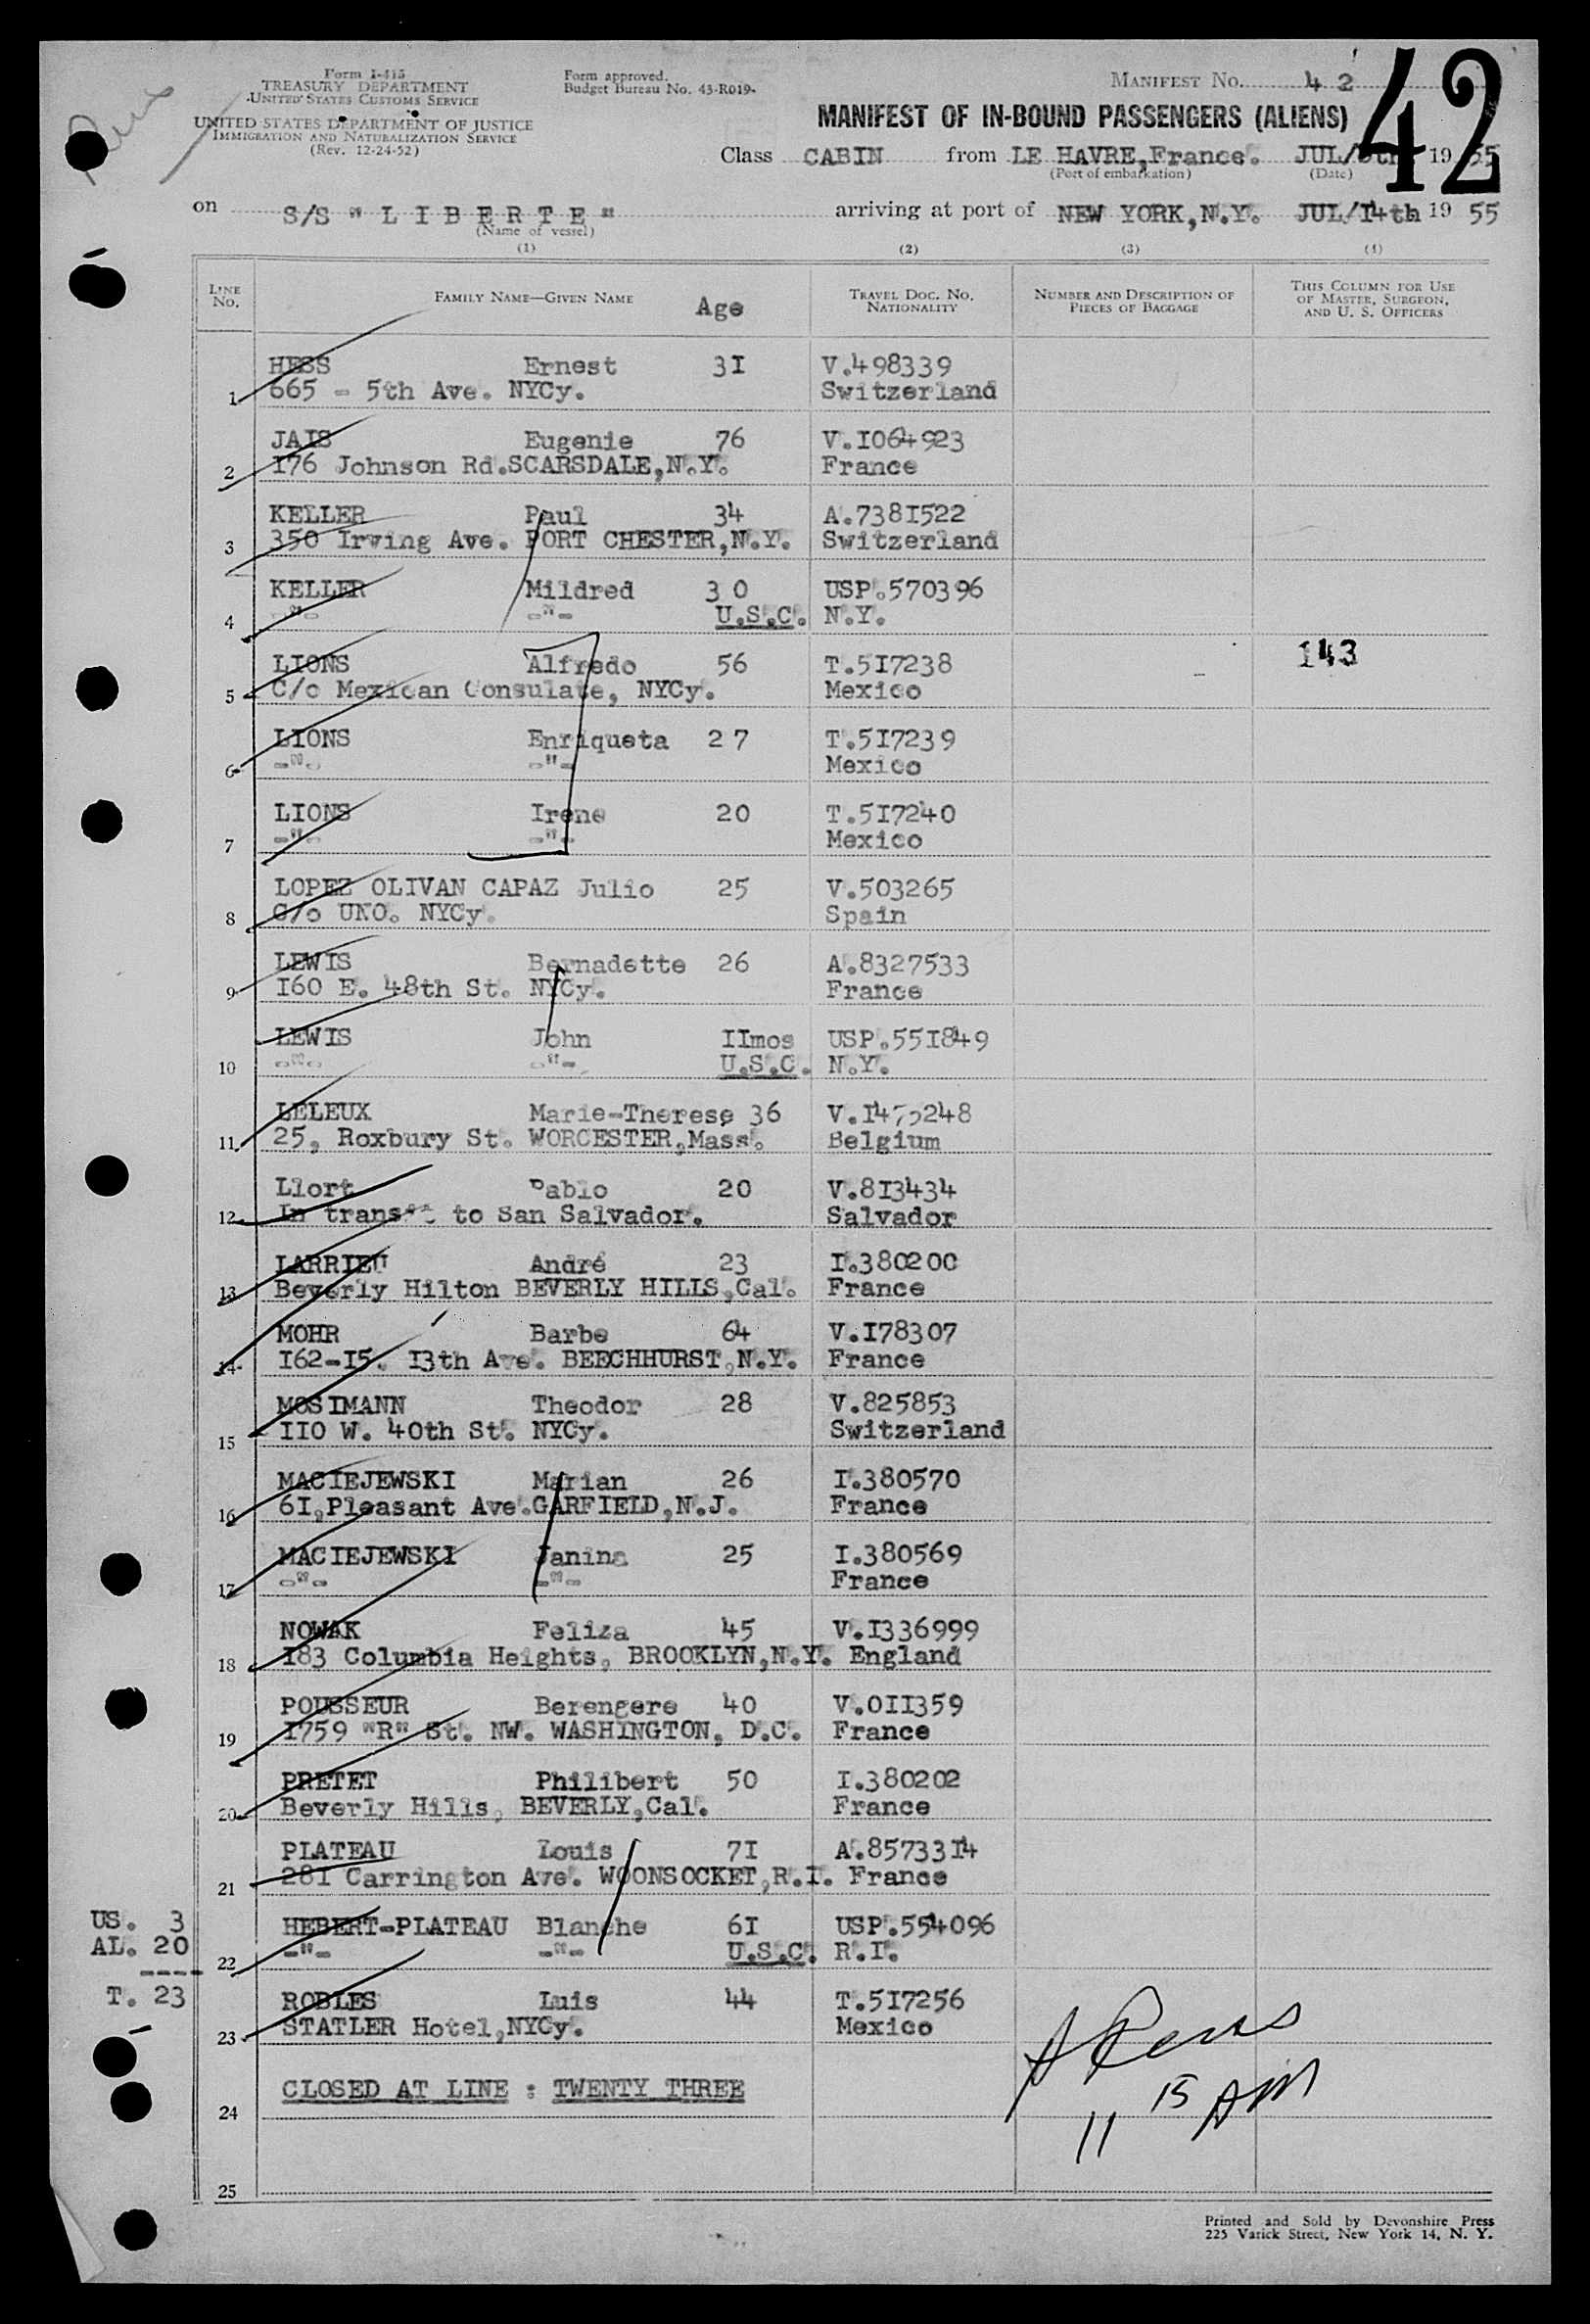 Form I-415
TREASURY DEPARTMENT
UNITED STATES CUSTOMS SERVICE
UNITED STATES DEPARTMENT OF JUSTICE
IMMIGRATION AND NATURALIZATION SERVICE
(Rev. 12-24-52)
Form approved.
Budget Bureau No. 43-R019.
MANIFEST No. 42
42
MANIFEST OF IN-BOUND PASSENGERS (ALIENS)
Class CABIN from LE HAVRE,France. JUL/ 19 55
(Port of embarkation) (Date)
on S/S " L I B E R T E " arriving at port of NEW YORK,N.Y. JUL/I4th 19 55
(Name of vessel)
(1) (2) (3) (4)
LINE No. FAMILY NAME—GIVEN NAME Age TRAVEL DOC. NO. NATIONALITY NUMBER AND DESCRIPTION OF PIECES OF BAGGAGE THIS COLUMN FOR USE OF MASTER, SURGEON, AND U. S. OFFICERS
HESS Ernest 3I V.498339
1 665 - 5th Ave. NYCy. Switzerland
JAIS Eugenie 76 V.I064923
2 I76 Johnson Rd.SCARSDALE,N.Y. France
KELLER Paul 34 A.738I522
3 350 Irving Ave. PORT CHESTER,N.Y. Switzerland
KELLER Mildred 3 0 USP.570396
4 -"- -"- U.S.C. N.Y.
LIONS Alfredo 56 T.5I7238 143
5 C/o Mexican Consulate, NYCy. Mexico
LIONS Enriqueta 2 7 T.5I7239
6 -"- -"- Mexico
LIONS Irene 20 T.5I7240
7 -"- -"- Mexico
LOPEZ OLIVAN CAPAZ Julio 25 V.503265
8 C/o UNO. NYCy. Spain
LEWIS Bernadette 26 A.8327533
9 I60 E. 48th St. NYCy. France
LEWIS John IImos USP.55I849
10 -"- -"- U.S.C. N.Y.
LELEUX Marie-Therese 36
11 25, Roxbury St. WORCESTER,Mass. Belgium
Llort Pablo 20 V.8I3434
12 In transit to San Salvador. Salvador
LARRIEU André 23 I.380200
13 Beverly Hilton BEVERLY HILLS,Cal. France
MOHR Barbe 64 V.I78307
14 I62-I5. I3th Ave. BEECHHURST,N.Y. France
MOSIMANN Theodor 28 V.825853
15 IIO W. 40th St. NYCy. Switzerland
MACIEJEWSKI Marian 26 I.380570
16 6I,Pleasant Ave.GARFIELD,N.J. France
MACIEJEWSKI Janina 25 I.380569
17 -"- -"- France
NOWAK Feliza 45 V.I336999
18 I83 Columbia Heights, BROOKLYN,N.Y. England
POUSSEUR Berengere 40 V.OII359
19 I759 "R" St. NW. WASHINGTON, D.C. France
PRETET Philibert 50 I.380202
20 Beverly Hills, BEVERLY,Cal. France
PLATEAU Louis 7I A.85733I4
21 28I Carrington Ave. WOONSOCKET,R.I. France
US. 3 HEBERT-PLATEAU Blanche 6I USP.554096
AL. 20 22 -"- -"- U.S.C. R.I.
----
T. 23 ROBLES Luis 44 T.5I7256
23 STATLER Hotel,NYCy. Mexico
CLOSED AT LINE : TWENTY THREE
24
11 15 AM
25
Printed and Sold by Devonshire Press
225 Varick Street, New York 14, N. Y.